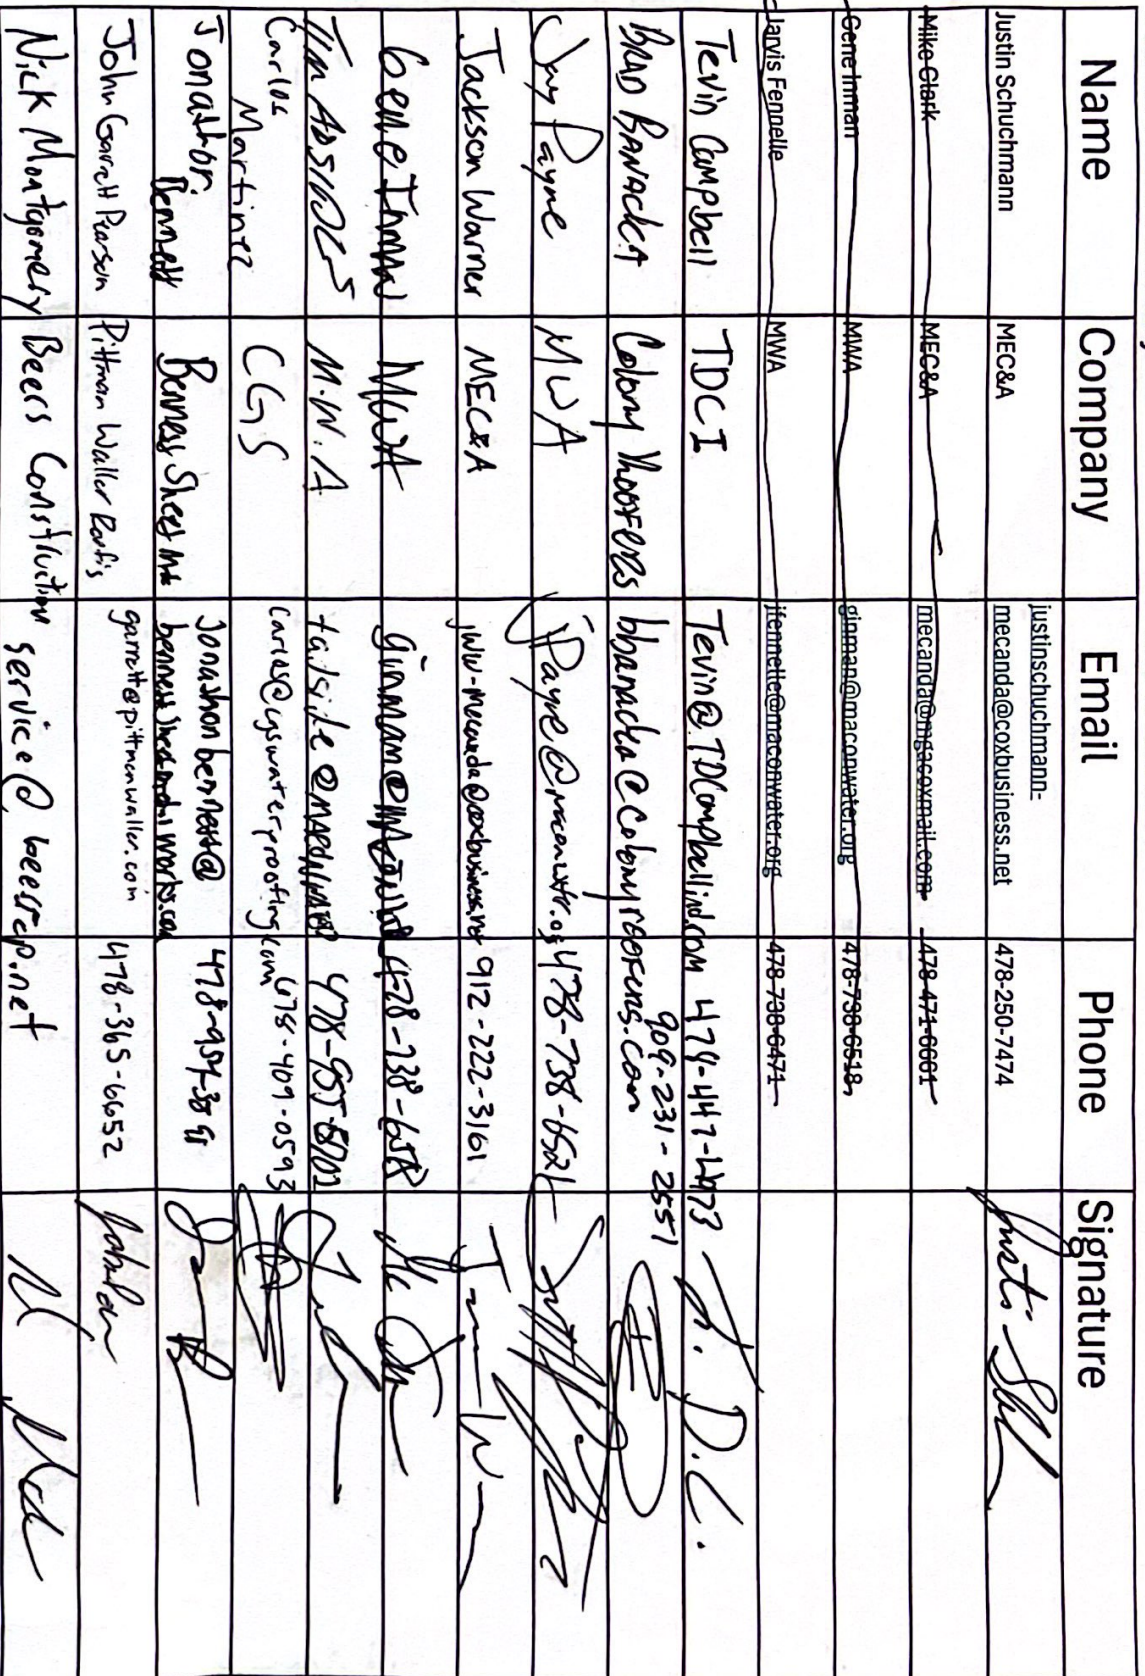 Name Company Email Phone Signature
Justin Schuchmann MEC&A justinschuchmann-
mecanda@coxbusiness.net 478-250-7474
Mike Clark MEC&A mecanda@mgacoxmail.com 478-471-6601
Gene Inman MWA ginman@maconwater.org 478-738-6518
Jarvis Fennelle MWA jfennelle@maconwater.org 478-738-6471
Tevin Campbell TDCI Tevin@TDCampbellind.com 478-447-4973 T. D.C.
BRAD BANACKA Colony Roofers bbanacka@colonyroofers.com 909-231-2551
Jay Payne MWA jpayne@maconwtr.org 478-738-6521
Jackson Warner MEC&A jww-mecanda@coxbusiness.net 912-222-3161
Gene Inman MWA 478-738-6518
Tim M.W.A 478-955-8702
Carlos
Martinez CGS carlos@cgswaterproofing.com 678-409-0593
Jonathon
Bennett Jonathonbennett@
478-957-3891
John Garrett Pearson Pittman Waller Roofing garrett@pittmanwaller.com 478-365-6652
Nick Montgomery Beers Construction service@beersep.net